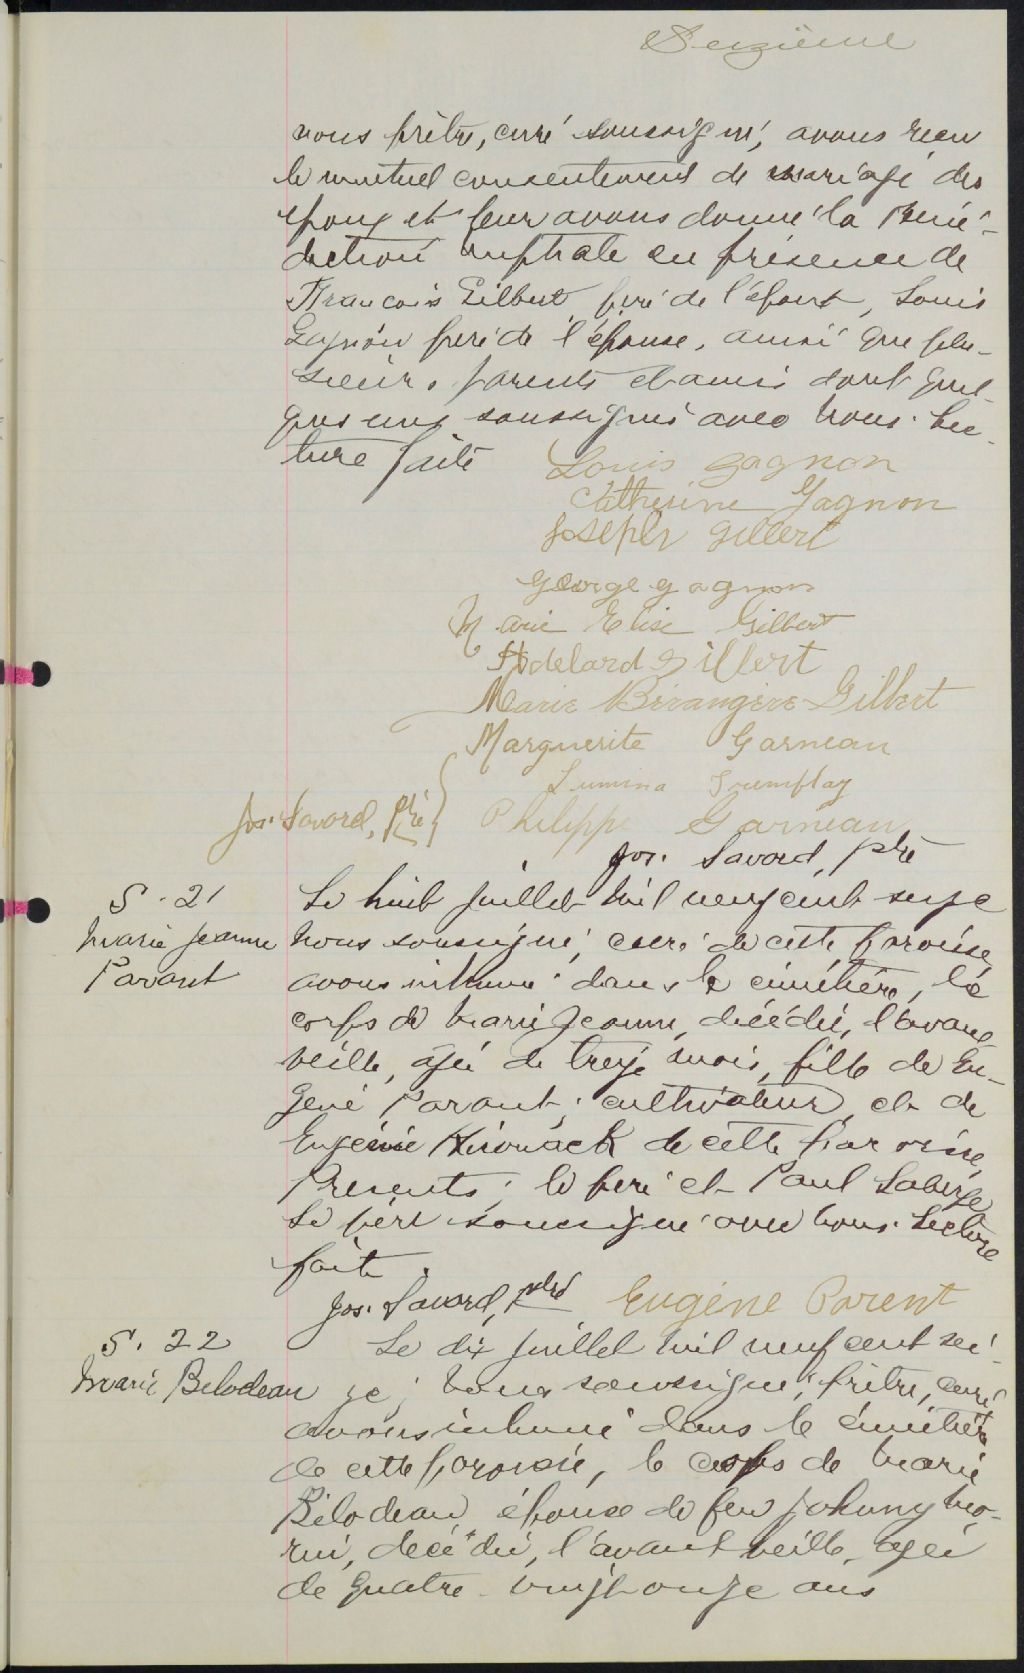 Seizième
nous prêtre, curé soussigné, avons reçu
le mutuel consentement de mariage des
époux et leur avons donné la béné-
diction nuptiale en présence de
François Gilbert père de l'époux, Louis
Gagnon frère de l'épouse, ainsi que plu-
sieurs parents et amis dont quel-
ques uns soussignés avec nous. Lec-
ture faite
Louis Gagnon
Catherine Gagnon
Joseph Gilbert
George Gagnon
Marie Elise Gilbert
Adelard Gilbert
Marie Bérangère Gilbert
Marguerite Garneau
Lumina Tremblay
Jos. Savard, ptre } Philippe Garneau
Jos. Savard, ptre
S. 21
Marie Jeanne
Parant
Le huit juillet mil neuf cent seize
nous soussigné, curé de cette paroisse,
avons inhumé dans le cimétière, le
corps de Marie Jeanne, décédée, l'avant
veille, âgée de treize mois, fille de Eu-
gène Parant, cultivateur, et de
Eugénie Kirouack de cette paroisse,
Présents; le père et Paul Laberge
Le père soussigné avec nous. Lecture
faite.
Jos. Savard, ptre Eugène Parent
S. 22
Marie Belodeau
Le dix juillet mil neuf cent sei-
ze, nous soussigné, prêtre, curé
avons inhumé dans le cimétière
de cette paroisse, le corps de Marie
Bélodeau épouse de feu Johnny Mo-
rin, décédée, l'avant veille, agée
de quatre-vingt onze ans